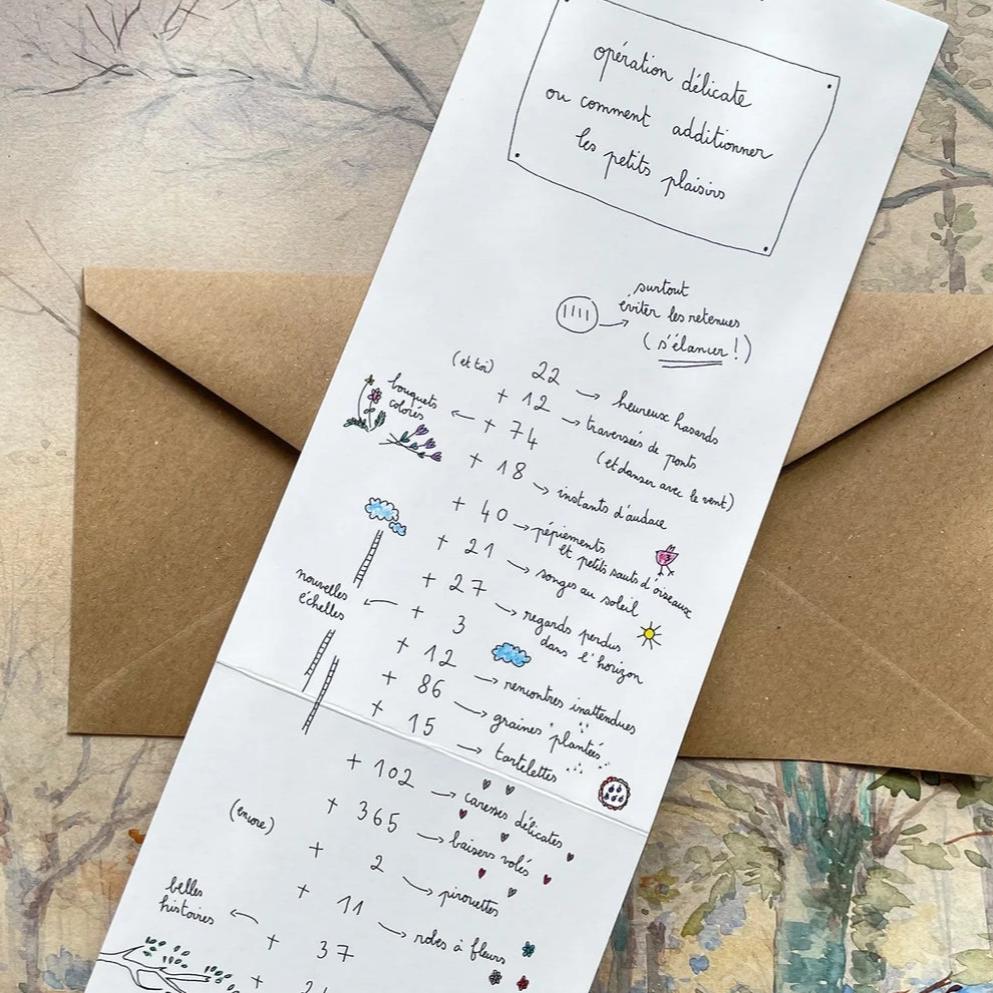 opération délicate
ou comment additionner
les petits plaisirs
surtout
éviter les retenues
(s'élancer !)
(et toi) 22 → heureux hasards
+ 12 → traversées de ponts
(et danser avec le vent)
bouquets
colorés ← + 74
+ 18 → instants d'audace
+ 40 → pépiements
et petits sauts d'oiseaux
+ 21 → songes au soleil
+ 27 → regards perdus
dans l'horizon
nouvelles
échelles ← + 3
+ 12 → rencontres inattendues
+ 86 → graines plantées
+ 15 → tartelettes
+ 102 → caresses délicates
+ 365 → baisers volés
(encore) + 2 → pirouettes
+ 11 → robes à fleurs
belles
histoires ← + 37
+